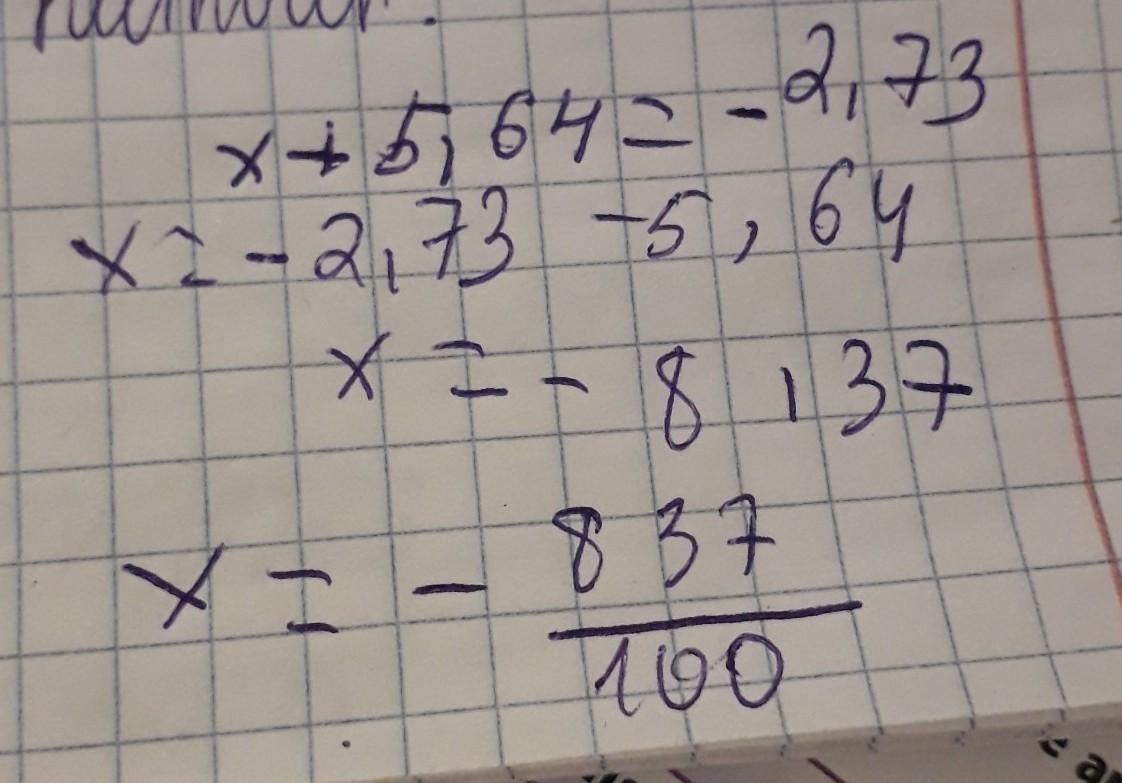 x + 5,64 = - 2,73
x = - 2,73 - 5,64
x = - 8,37
x = - 837/100